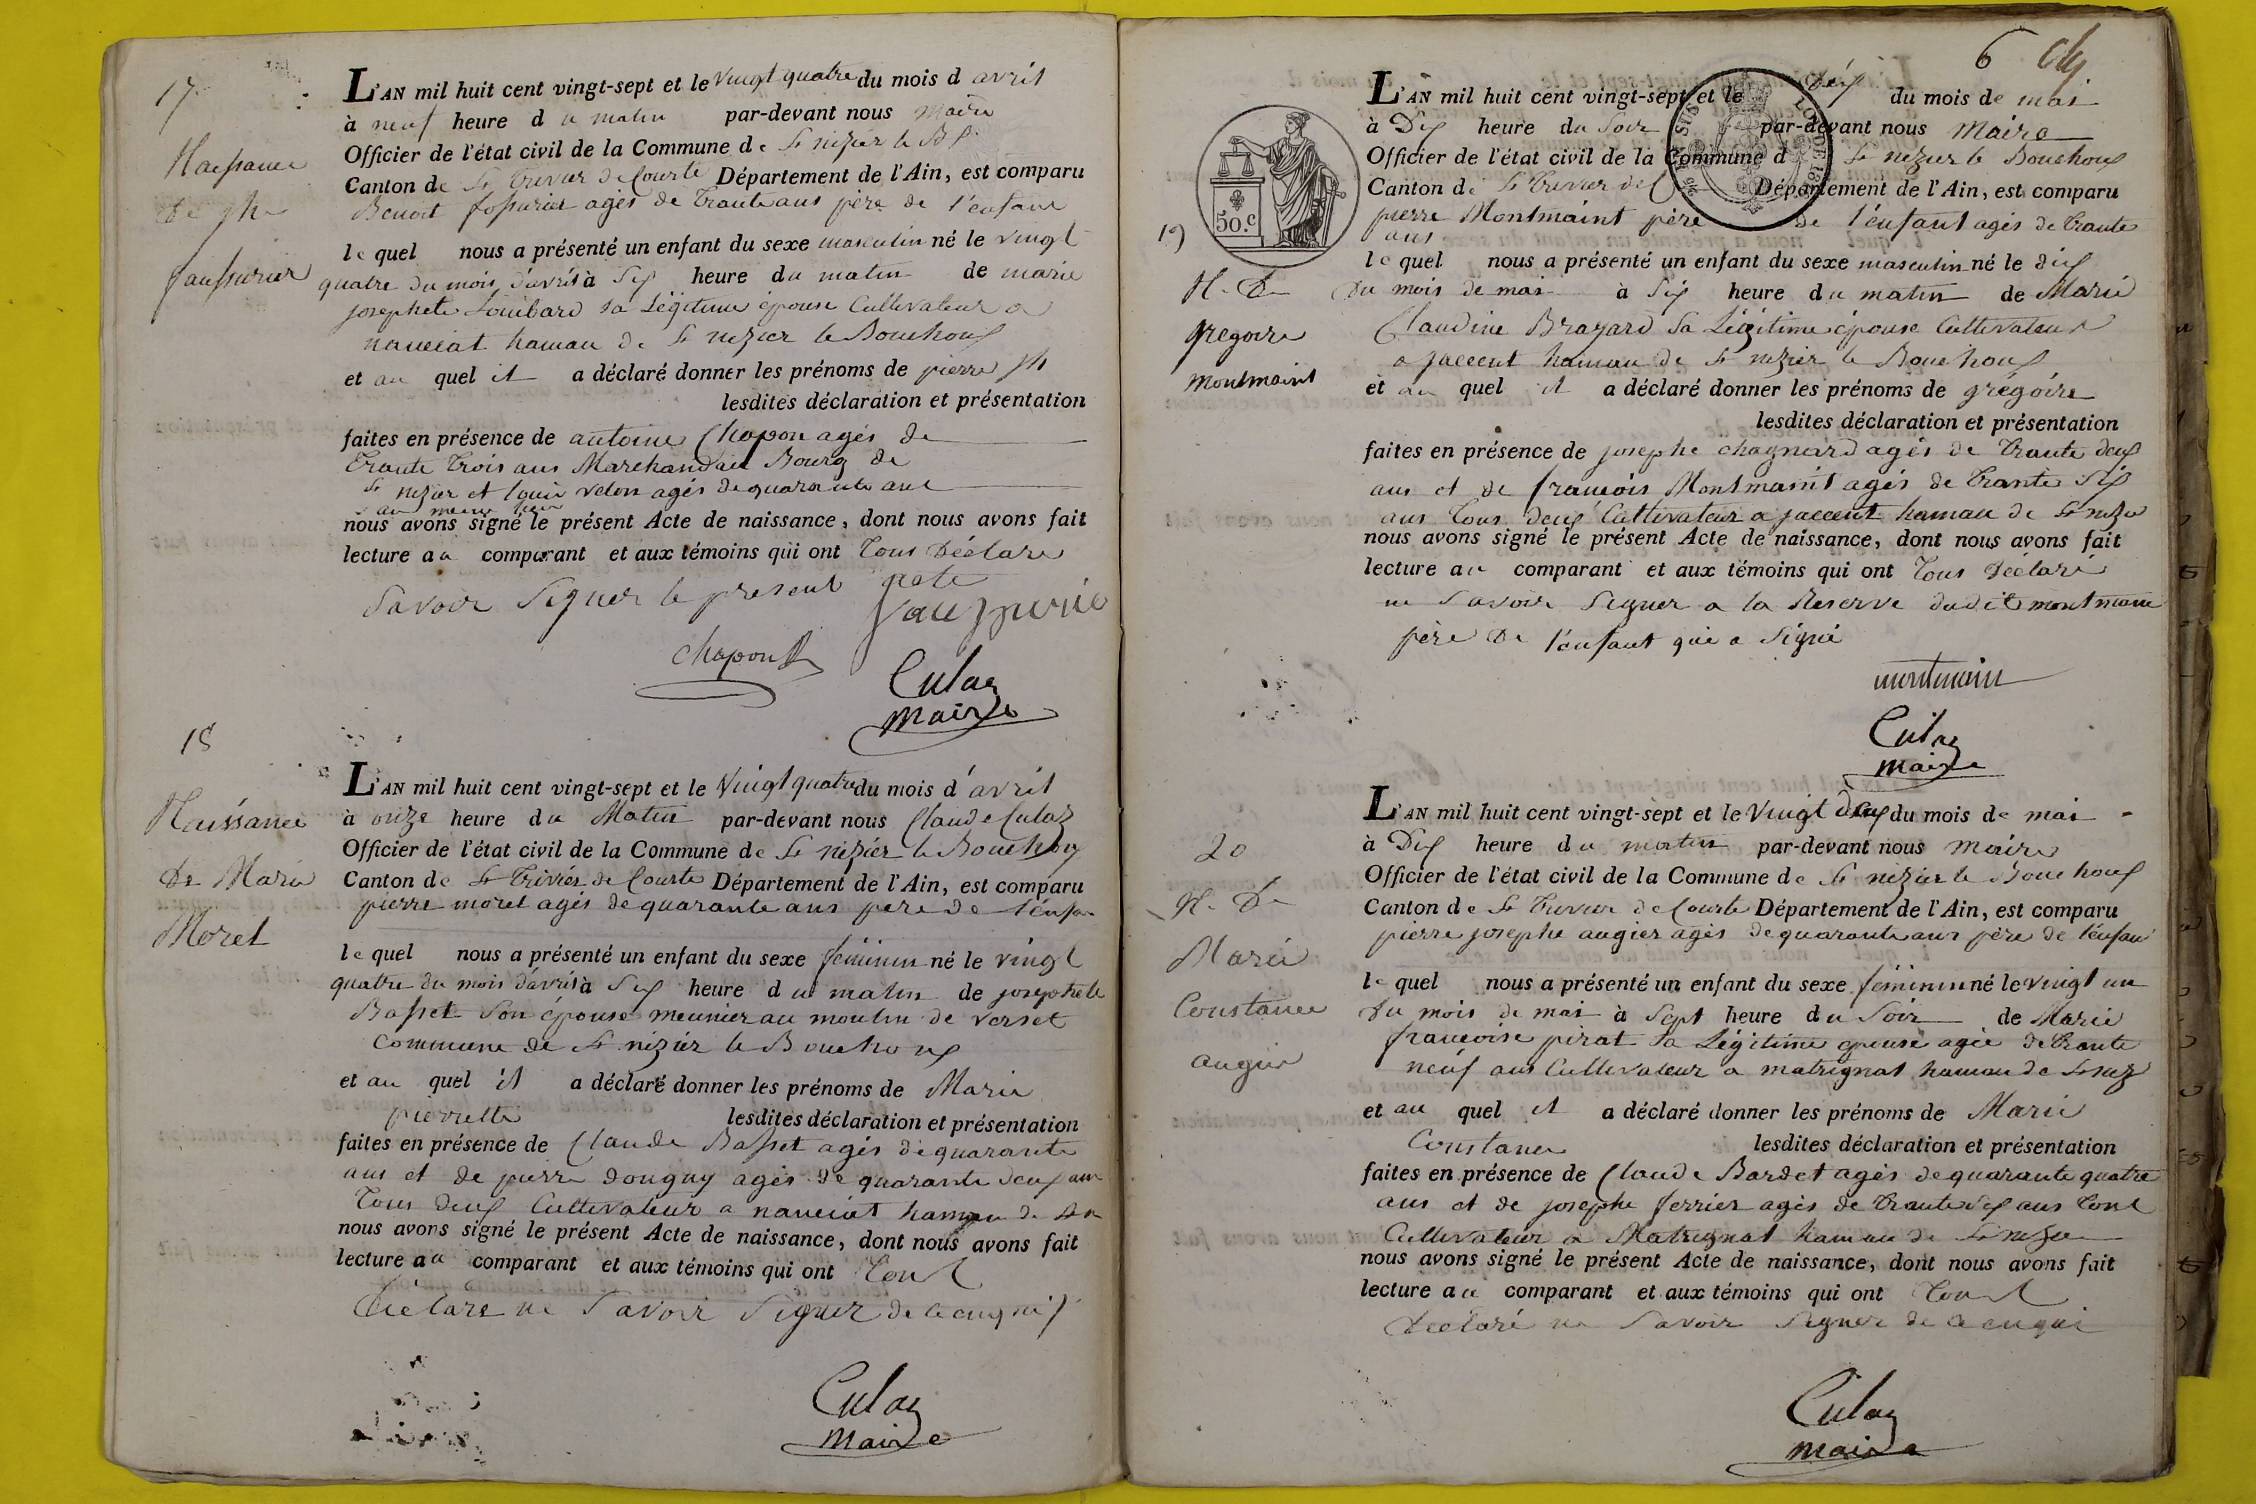 17
Naissance
de jh
faussurier
L'AN mil huit cent vingt-sept et le vingt quatre du mois d avril
à neuf heure d u matin par-devant nous Maire
Officier de l'état civil de la Commune de St nizier le B
Canton de St Trivier de Courte Département de l'Ain, est comparu
Benoit fossurier agés de trante ans père de l'enfant
le quel nous a présenté un enfant du sexe masculin né le vingt
quatre du mois d'avril à six heure du matin de marie
josephete Loubard sa Légitime épouse Cultivateur a
nanciat hamau de St nizier le Bouchoux
et au quel il a déclaré donner les prénoms de pierre jh
lesdites déclaration et présentation
faites en présence de antoine Chapon agés de
trante trois ans Marchand au Bourg de
St nizier et louis velon agés de quarante ans
au meme lieu
nous avons signé le présent Acte de naissance, dont nous avons fait
lecture au comparant et aux témoins qui ont tous Déclare
Savoir Signer le present acte
chapon
Culaz
Maire
18
Naissance
de Marie
Morel
L'AN mil huit cent vingt-sept et le vingt quatre du mois d'avril
à onze heure du Matin par-devant nous Claude Culaz
Officier de l'état civil de la Commune de St nizier le Bouchoux
Canton de St Trivier de Courte Département de l'Ain, est comparu
pierre morel agés de quarante ans père de l'enfan
le quel nous a présenté un enfant du sexe féminin né le vingt
quatre du mois d'avril à six heure du matin de josephete
Basset Son épouse meunier au moulin de verset
commune de St nizier le Bouchoux
et au quel il a déclaré donner les prénoms de Marie
pierrette lesdites déclaration et présentation
faites en présence de Claude Basset agés de quarante
ans et de pierre douguy agés de quarante deux ans
tous deux Cultivateur a nanciat hamau de St n
nous avons signé le présent Acte de naissance, dont nous avons fait
lecture au comparant et aux témoins qui ont tous
Déclare ne Savoir Signer de ce enquis
Culaz
Maire
6
L'AN mil huit cent vingt-sept et le Dix du mois de mai
à Dix heure du Soir par-devant nous Maire
Officier de l'état civil de la Commune d St nizier le Bouchoux
Canton de St Trivier de C Département de l'Ain, est comparu
pierre Montmaint père de l'enfant agés de trante
ans
50.c
19
N. De
gregoire
montmaint
le quel nous a présenté un enfant du sexe masculin né le dix
Du mois de mai à Six heure du matin de Marie
Claudine Brazard Sa Légitime épouse Cultivateur
a jaccent hamau de St nizier le Bouchoux
et au quel il a déclaré donner les prénoms de grégoire
lesdites déclaration et présentation
faites en présence de josephe chagnard agés de trante deux
ans et de francois Montmaint agés de trante Six
ans tous deux Cultivateur a jaccent hamau de St nizie
nous avons signé le présent Acte de naissance, dont nous avons fait
lecture au comparant et aux témoins qui ont tous Déclaré
ne Savoir Signer a la Reserve dudit montmain
père De l'enfant qui a Signé
montmain
Culaz
maire
20
N. De
Marie
Constance
augier
L'AN mil huit cent vingt-sept et le vingt deux du mois de mai
à Dix heure du matin par-devant nous Maire
Officier de l'état civil de la Commune de St nizier le Bouchoux
Canton de St Trivier de Courte Département de l'Ain, est comparu
pierre josephe augier agés de quarante ans père de l'enfan
le quel nous a présenté un enfant du sexe féminin né le vingt un
du mois de mai à Sept heure du Soir de Marie
francoise pirat Sa Légitime épouse agée de trante
neuf ans Cultivateur a matrignat hamau de St niz
et au quel il a déclaré donner les prénoms de Marie
Constance lesdites déclaration et présentation
faites en présence de Claude Bardet agés de quarante quatre
ans et de josephe ferrier agés de trante six ans tous
Cultivateur a Matrignat hamau de St nizie
nous avons signé le présent Acte de naissance, dont nous avons fait
lecture au comparant et aux témoins qui ont tous
Déclaré ne Savoir Signer de ce enquis
Culaz
Maire